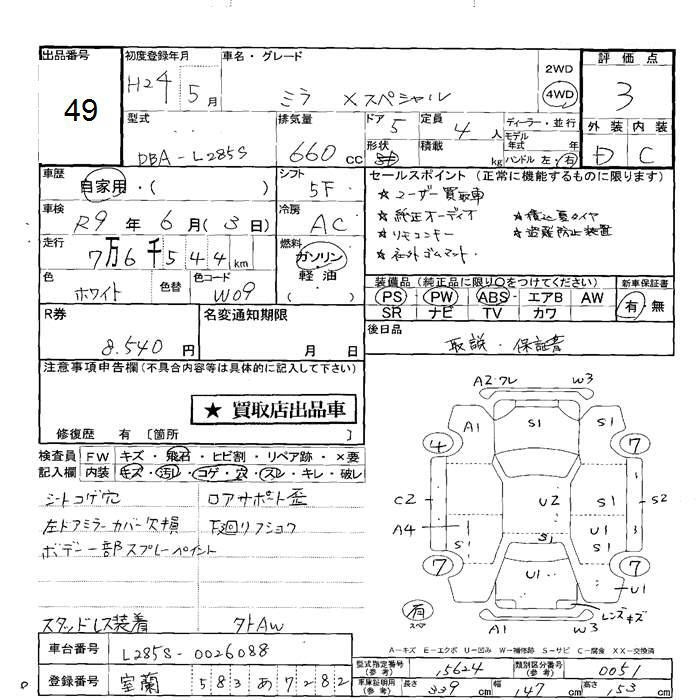 出品番号 初度登録年月 車名・グレード 評価点
49 H24 5月 ミラ Xスペシャル 2WD 4WD 3
型式 排気量 ドア 定員 ディーラー・並行 外装 内装
DBA-L285S 660cc 5 4人 モデル年式 年 D C
形状 積載 kg ハンドル 左・右
車歴 シフト セールスポイント(正常に機能するものに限ります)
自家用・( ) 5F ★ユーザー買取車
車検 冷房 ★純正オーディオ ★積込夏タイヤ
R9年6月(3日) AC ★リモコンキー ★盗難防止装置
走行 燃料 ★社外ゴムマット
7万6千544km ガソリン 軽油 ( )
色 色替 色コード 装備品(純正品に限り○をつけてください) 新車保証書
ホワイト W09 PS・PW・ABS・エアB AW 有・無
SR ナビ TV カワ
R券 名変通知期限 後日品
8.540円 月 日 取説・保証書
注意事項申告欄(不具合内容等は具体的に記入して下さい)
★ 買取店出品車
修復歴 有 〔箇所 〕
検査員 FW キズ・飛石・ヒビ割・リペア跡・×要
記入欄 内装 キズ・汚レ・コゲ・穴・スレ・キレ・破レ
シートコゲ穴 ロアサポート歪
左ドアミラーカバー欠損 下廻リフショウ
ボデー一部スプレーペイント
スタッドレス装着 外AW
A2 ワレ W3
A1 S1 S1
4 7
C2 U2 S1 S2
A4 S1 S1 U1
7 U1 S1 7
U1
有 スペア A1 W3 レンズキズ
A-キズ E-エクボ U-凹み W-補修跡 S-サビ C-腐食 XX-交換済
車台番号 L285S-0026088 型式指定番号(参考) 15624 類別区分番号(参考) 0051
登録番号 室蘭 583 あ 7282 車庫証明用(参考) 長さ 339cm 幅 147cm 高さ 153cm